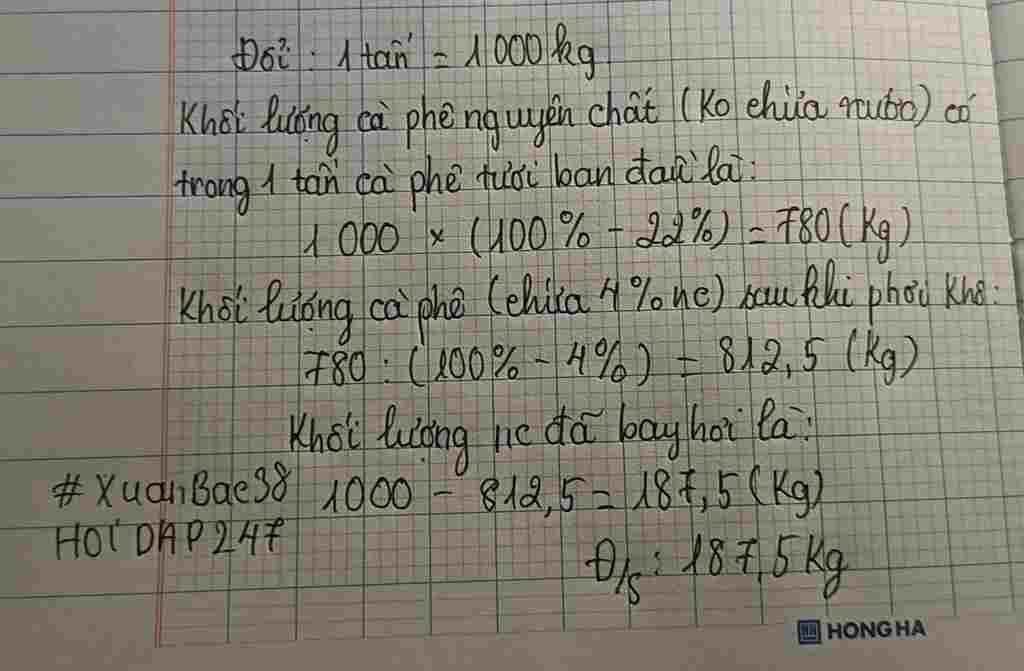 Đổi : 1 tấn = 1 000 kg
Khối lượng cà phê nguyên chất (Ko chứa nước) có
trong 1 tấn cà phê tươi ban đầu là:
1 000 × (100% - 22%) = 780 (Kg)
Khối lượng cà phê (chứa 4% nc) sau khi phơi khô:
780 : (100% - 4%) = 812,5 (Kg)
Khối lượng nc đã bay hơi là:
#XuanBae38 1000 - 812,5 = 187,5 (Kg)
HOIDAP247
Đ/s : 187,5 Kg
HH HONG HA